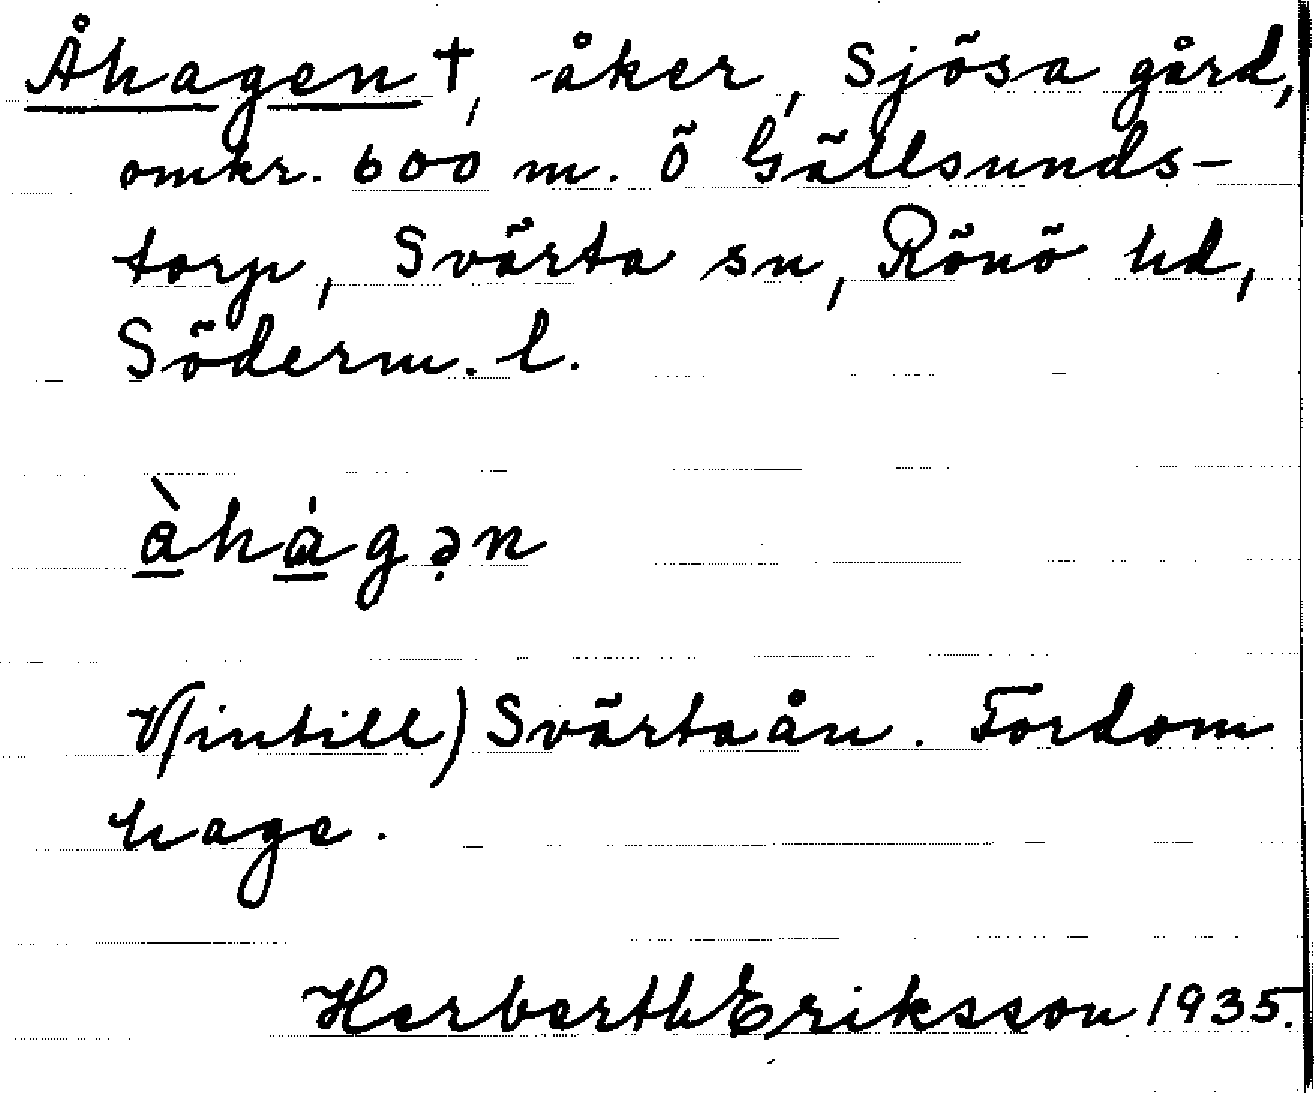 Åhagen †, åker, Sjösa gård,
omkr. 600 m. Ö Gällsunds-
torp, Svärta sn, Rönö hd,
Söderm. l.
àhágən
V(intill) Svärtaån. Fordom
hage.
Herberth Eriksson 1935.